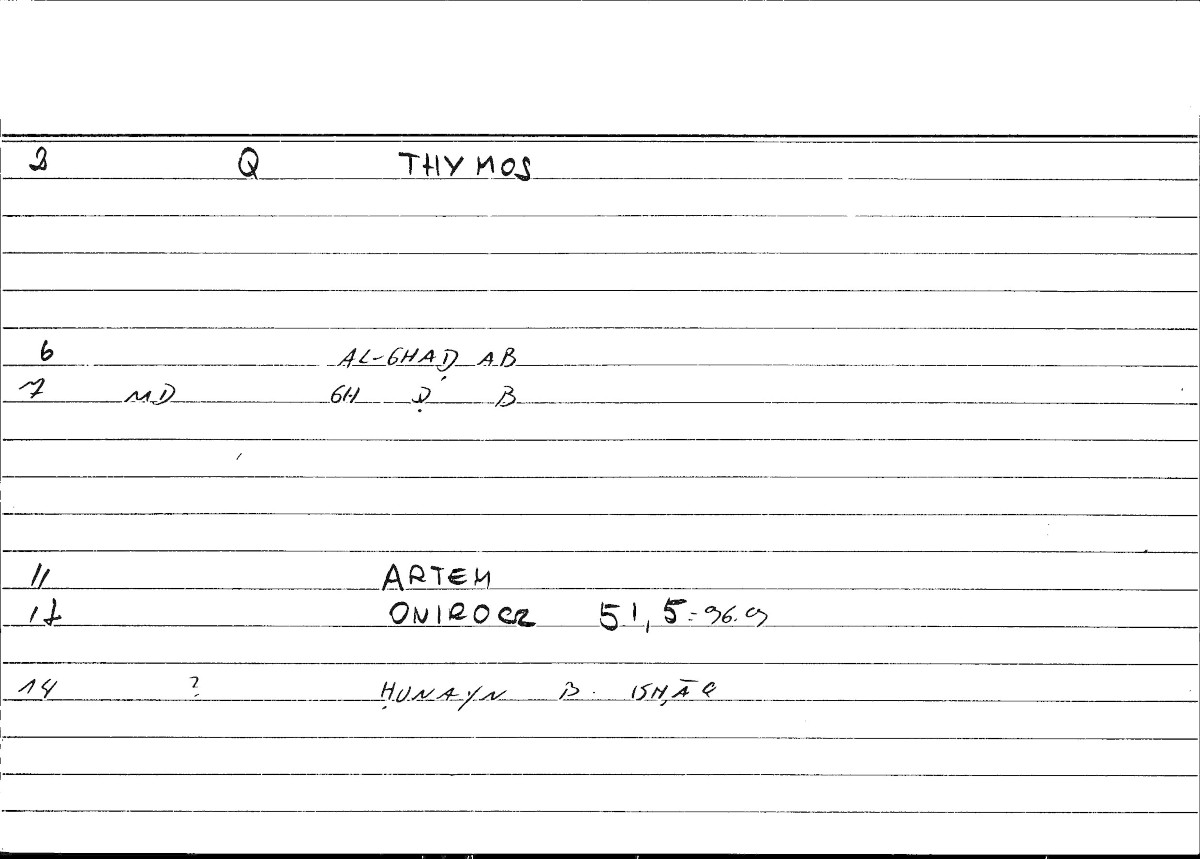 2 Q THYMOS
6 AL-GHAḌAB
7 MD GH Ḍ B
11 ARTEM
12 ONIROCR 51,5 = 96.9
14 ? ḤUNAYN B. ISḤĀQ